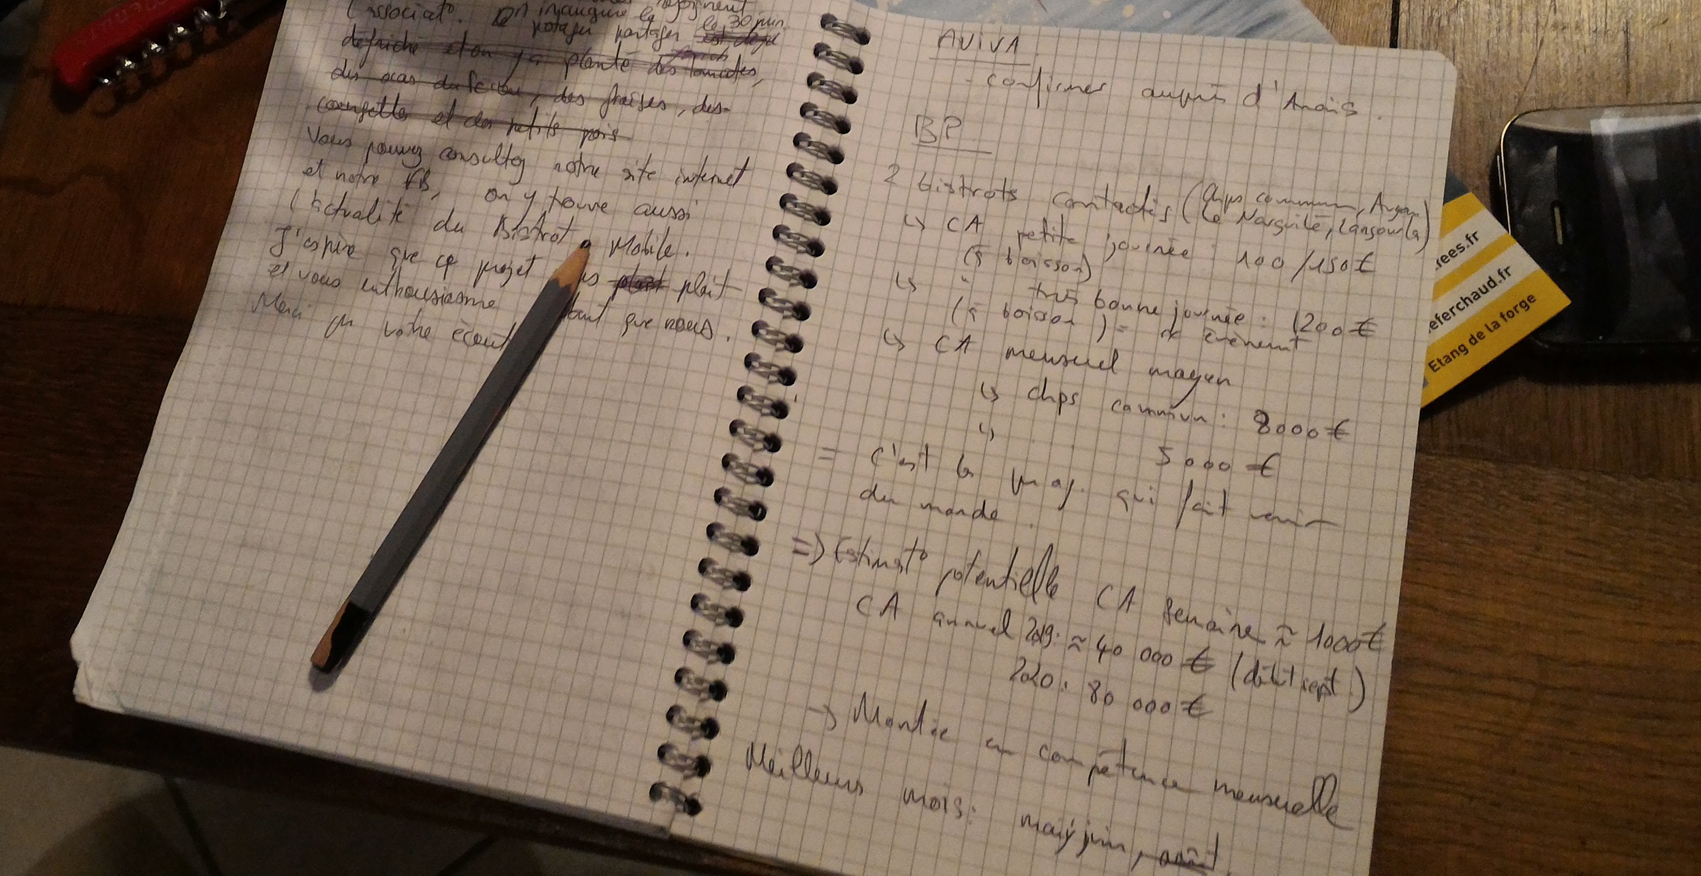 l'associat°. On inaugure le
potager partager le 30 juin
est déjà
défriché et on y a planté des tomates,
des fraises, des
courgettes et des petits pois
Vous pouvez consultez notre site internet
et notre FB, on y trouve aussi
l'actualité du Bistrot Mobile.
J'espère que ce projet plait
et vous enthousiasme tant que nous.
Merci votre écout
AVIVA
- confirmer auprès d'Anaïs.
BP
2 bistrots contactés (Chps commun, Augan
Le Narguilé, Langourla)
↳ CA petite journée : 100/150€
(§ boisson)
↳ " très bonne journée : 1200€
(§ boisson) = évènement
↳ CA mensuel moyen
↳ chps commun : 8000€
↳ 5000€
= c'est la qui fait venir
du monde.
=> Estimat° potentielle CA semaine ≈ 1000€
CA annuel 2019: ≈ 40 000€ (début sept.)
2020: 80 000€
→ Montée en compétence mensuelle
Meilleurs mois: mai, juin, août
fees.fr
eferchaud.fr
Etang de la forge